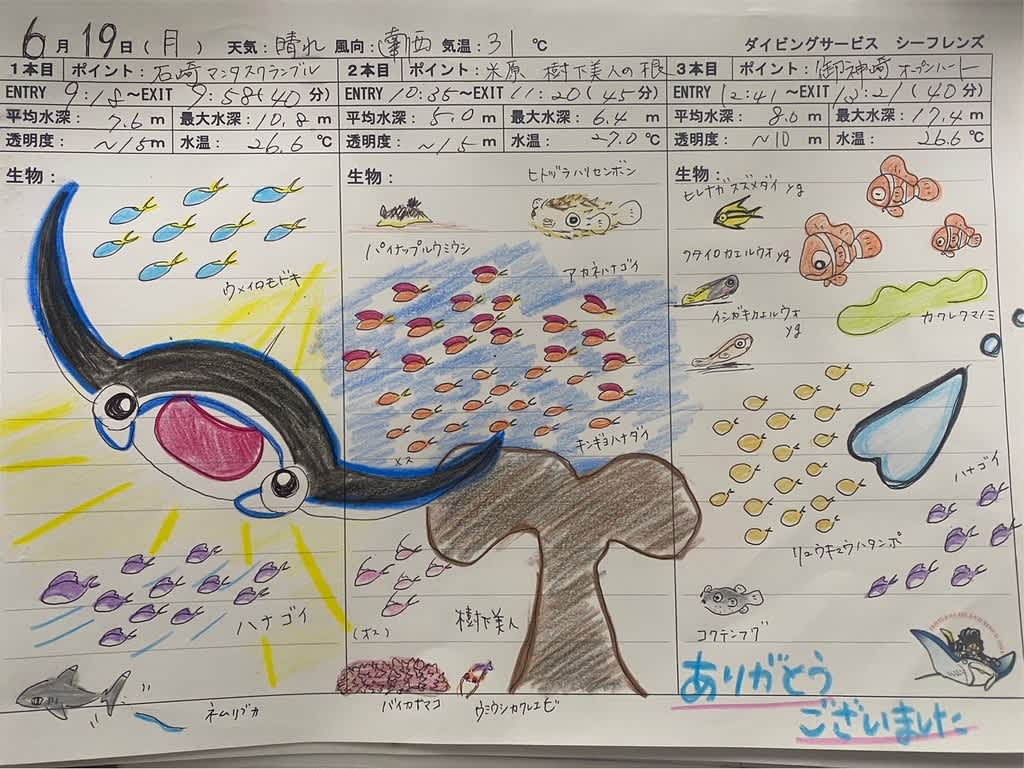 6月19日(月) 天気:晴れ 風向:南西 気温:31℃
ダイビングサービス シーフレンズ
1本目 ポイント:石崎マンタスクランブル
ENTRY 9:18~EXIT 9:58(40分)
平均水深:7.6m 最大水深:10.8m
透明度:~15m 水温:26.6℃
生物:
ウメイロモドキ
ハナゴイ
ネムリブカ
2本目 ポイント:米原 樹下美人の根
ENTRY 10:35~EXIT 11:20(45分)
平均水深:5.0m 最大水深:6.4m
透明度:~15m 水温:27.0℃
生物:
ヒトヅラハリセンボン
パイナップルウミウシ
アカネハナゴイ
キンギョハナダイ
メス
(オス)
樹下美人
バイカナマコ
ウミウシカクレエビ
3本目 ポイント:御神崎 オープンハート
ENTRY 12:41~EXIT 13:21(40分)
平均水深:8.0m 最大水深:17.4m
透明度:~10m 水温:26.6℃
生物:
ヒレナガスズメダイ yg
フタイロカエルウオ yg
イシガキカエルウオ
yg
カクレクマノミ
ハナゴイ
リュウキュウハタンポ
コクテンフグ
ありがとう
ございました